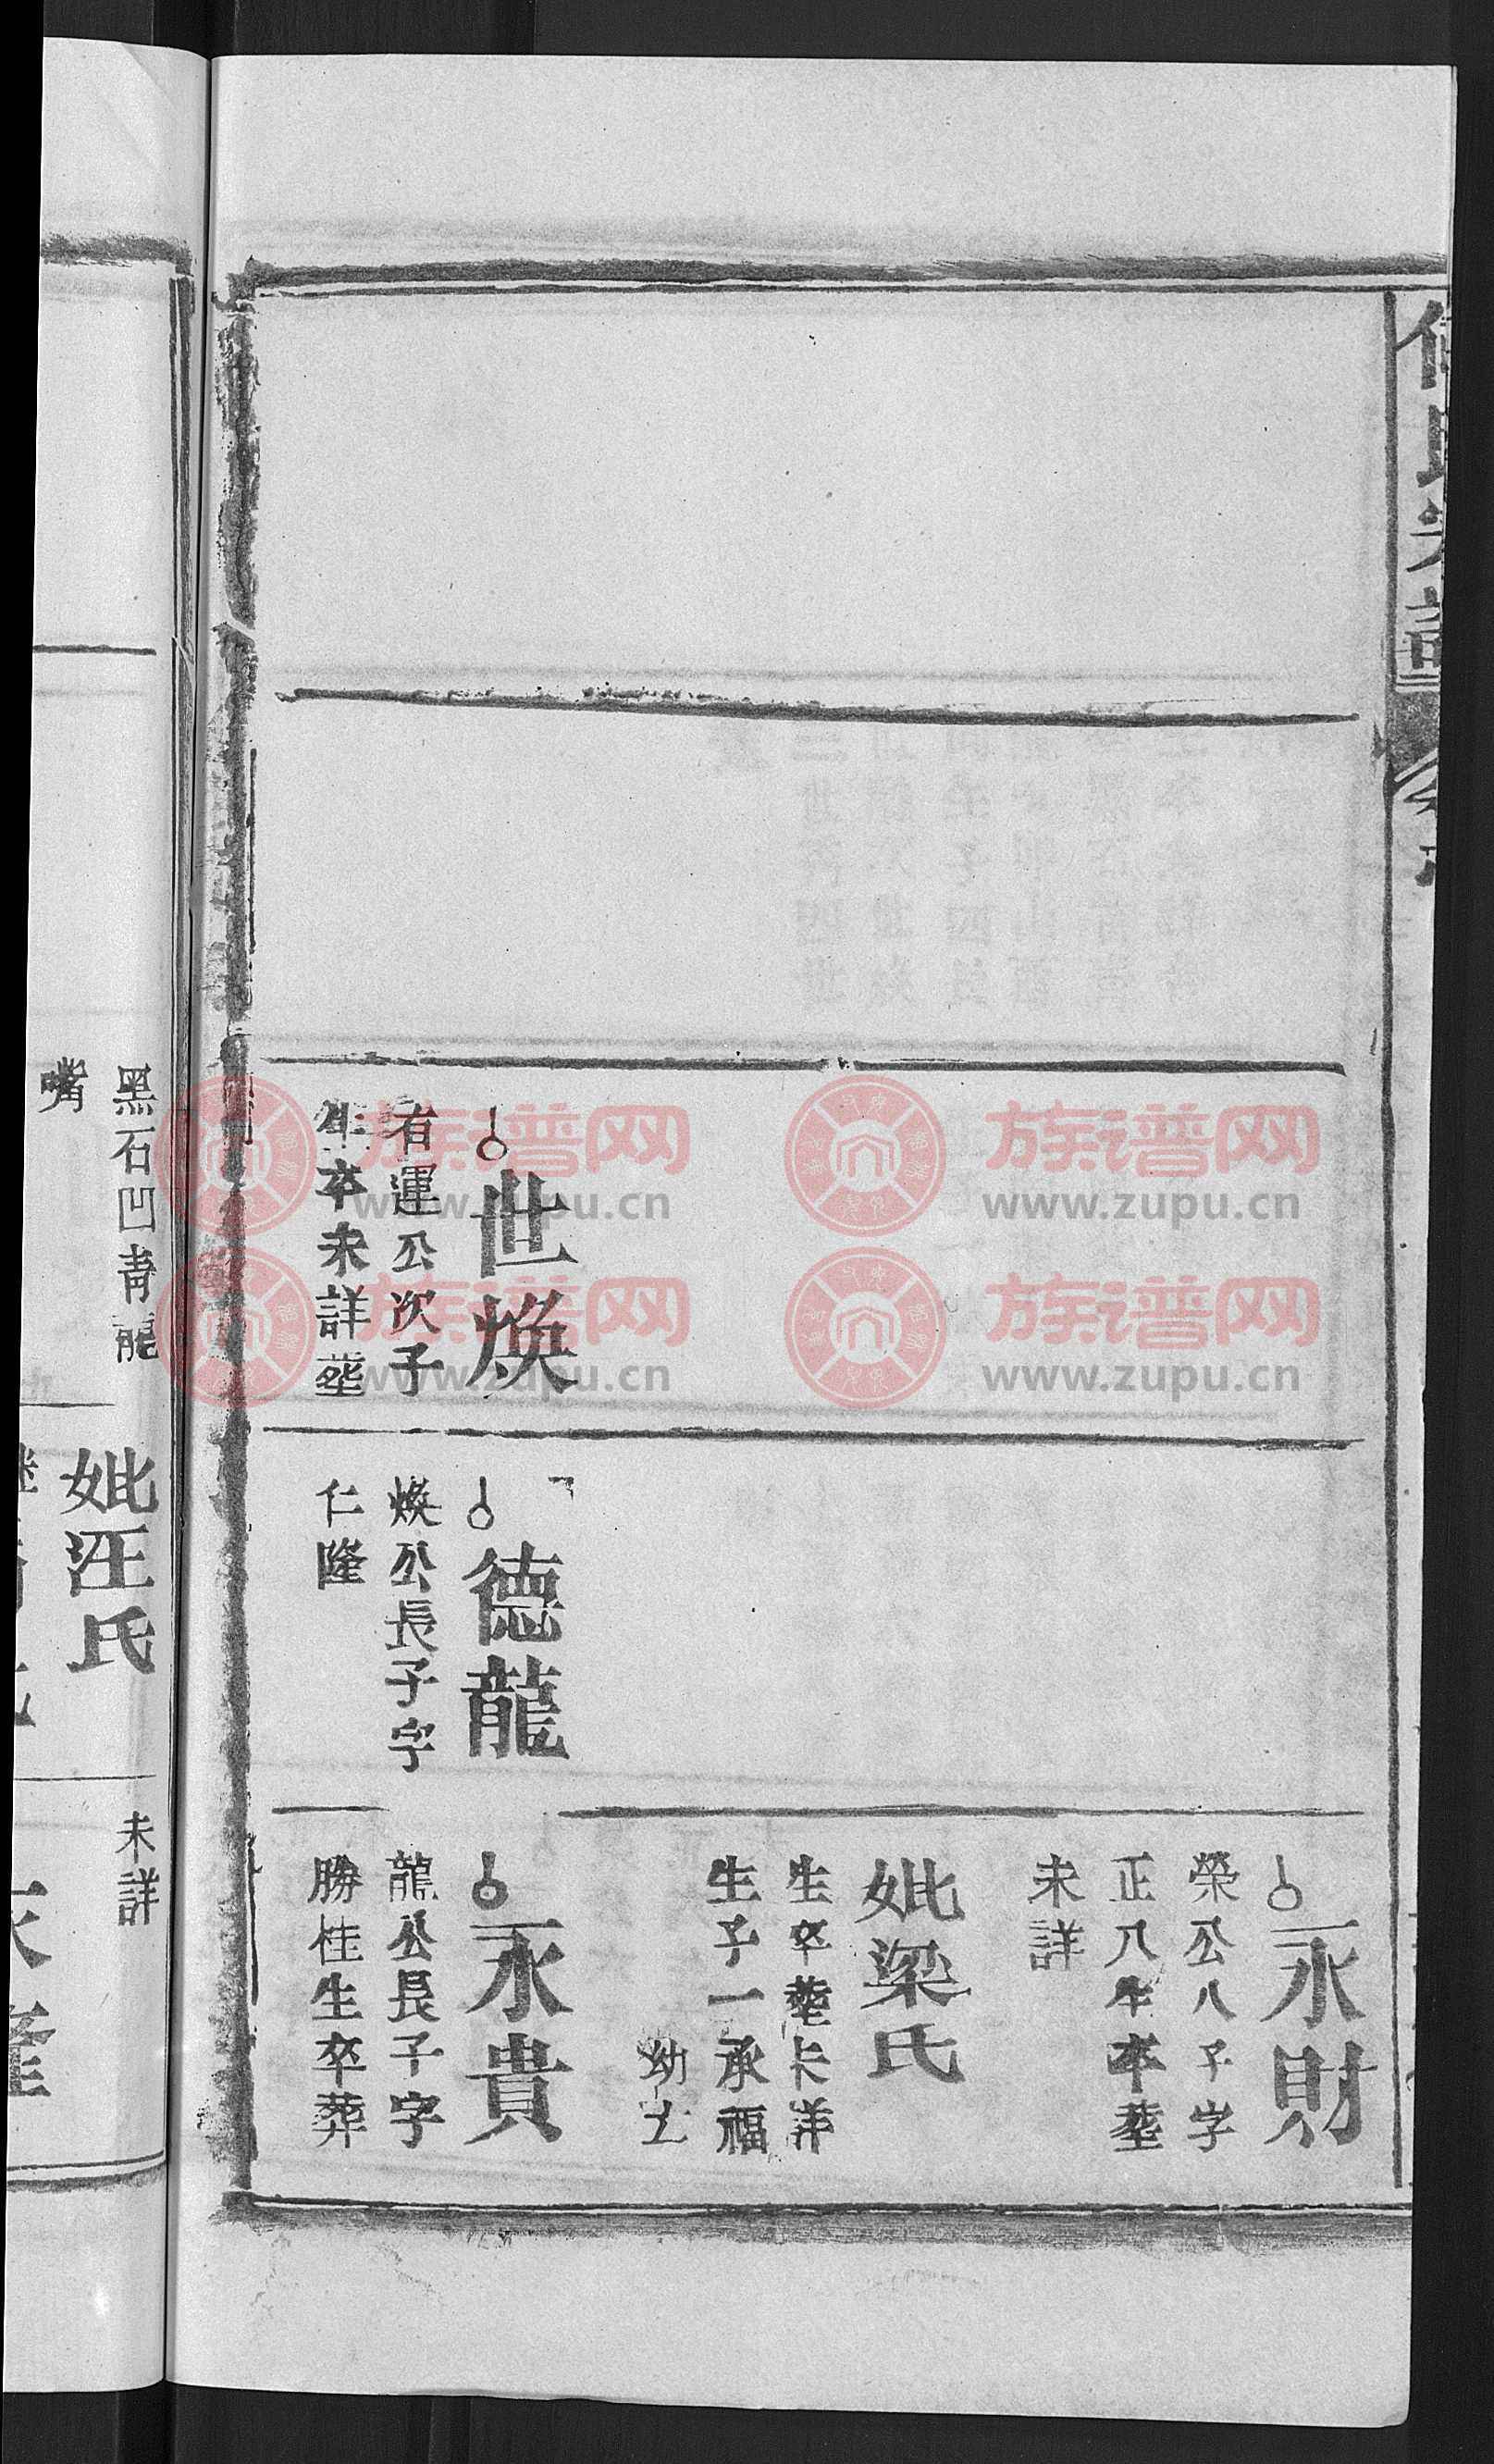 世煥
有運公次子
生卒未詳葬
德龍
煥公長子字
仁隆
永財
榮公八子字
正八年卒葬
未詳
妣梁氏
生卒葬未詳
生子一承福
幼亡
永貴
龍公長子字
勝桂生卒葬
黑石凹青龍
嘴
妣汪氏
未詳
族谱网
www.zupu.cn
族谱网
www.zupu.cn
族谱网
www.zupu.cn
族谱网
www.zupu.cn